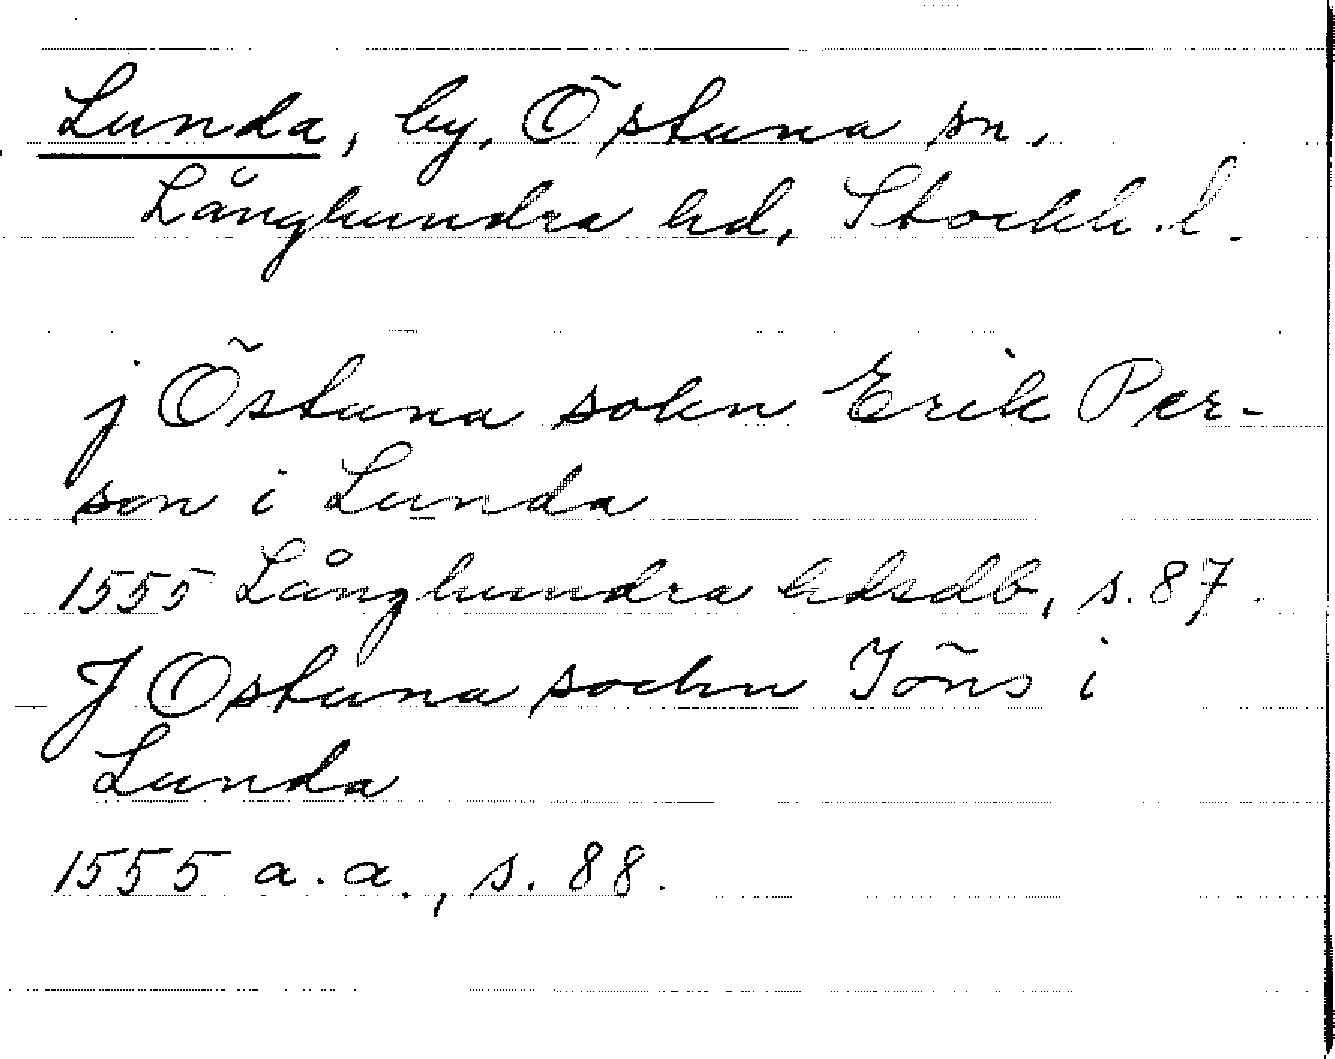 Lunda, by, Östuna sn,
Långhundra hd, Stockh. l.
j Östuna sokn Erik Per-
son i Lunda
1555 Långhundra hdsdb, s. 87.
J Ostuna sochn Jöns i
Lunda
1555 a.a., s. 88.